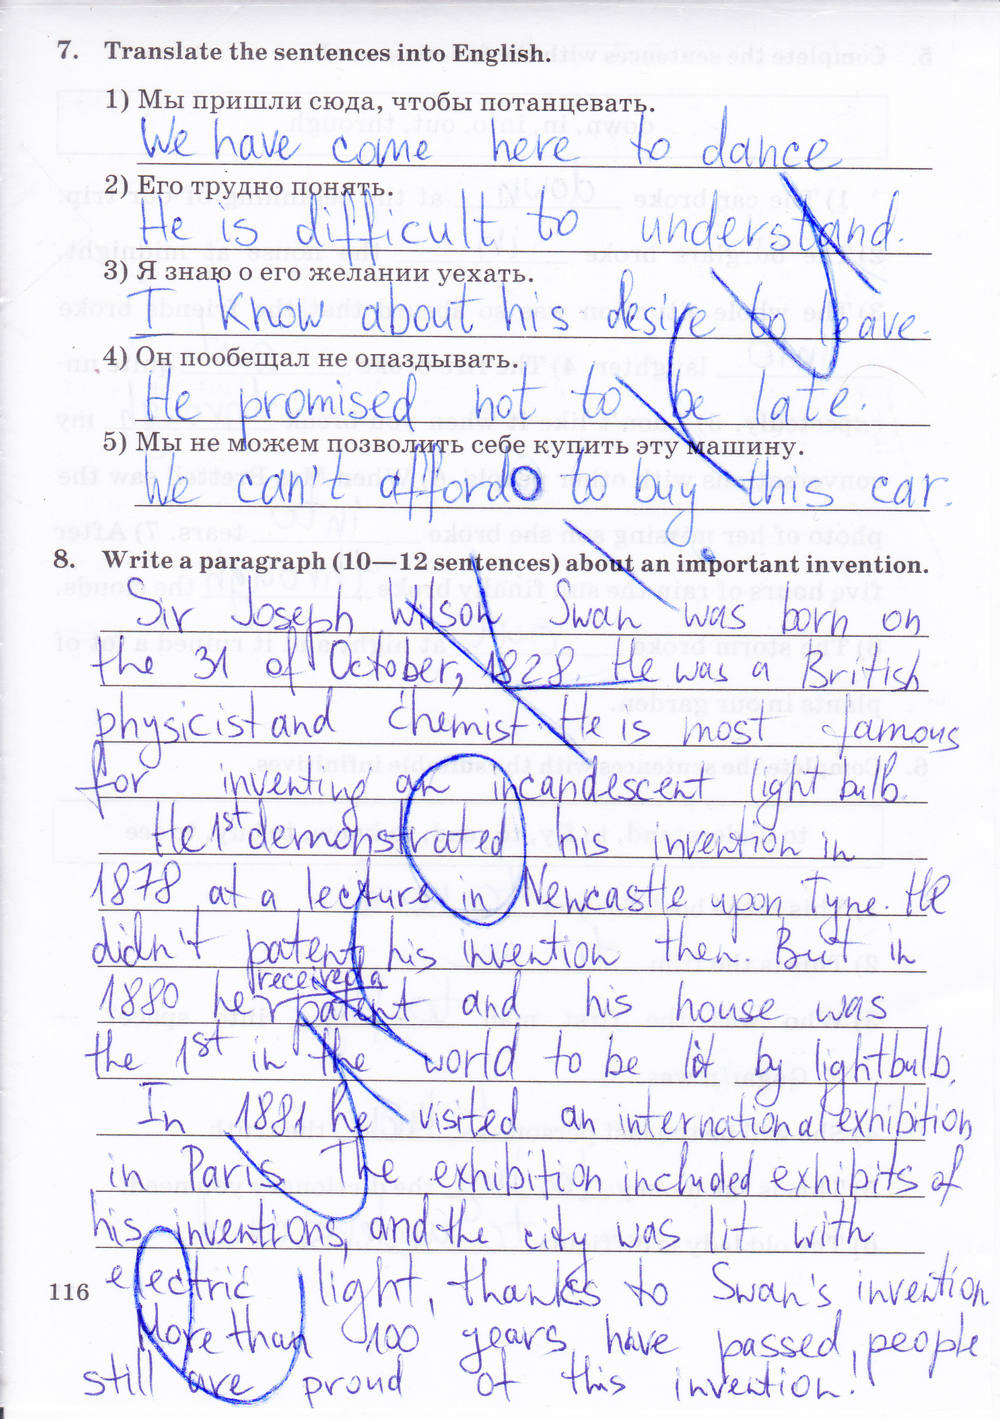 7. Translate the sentences into English.
1) Мы пришли сюда, чтобы потанцевать.
We have come here to dance
2) Его трудно понять.
He is difficult to understand.
3) Я знаю о его желании уехать.
I know about his desire to leave.
4) Он пообещал не опаздывать.
He promised not to be late.
5) Мы не можем позволить себе купить эту машину.
We can't afford to buy this car.
8. Write a paragraph (10—12 sentences) about an important invention.
Sir Joseph Wilson Swan was born on
the 31 of October, 1828. He was a British
physicist and chemist. He is most famous
for inventing an incandescent light bulb.
He 1st demonstrated his invention in
1878 at a lecture in Newcastle upon Tyne. He
didn't patent his invention then. But in
received a
1880 he patent and his house was
the 1st in the world to be lit by lightbulb.
In 1881 he visited an international exhibition
in Paris. The exhibition included exhibits of
his inventions, and the city was lit with
116 electric light, thanks to Swan's invention
More than 100 years have passed, people
still are proud of this invention!